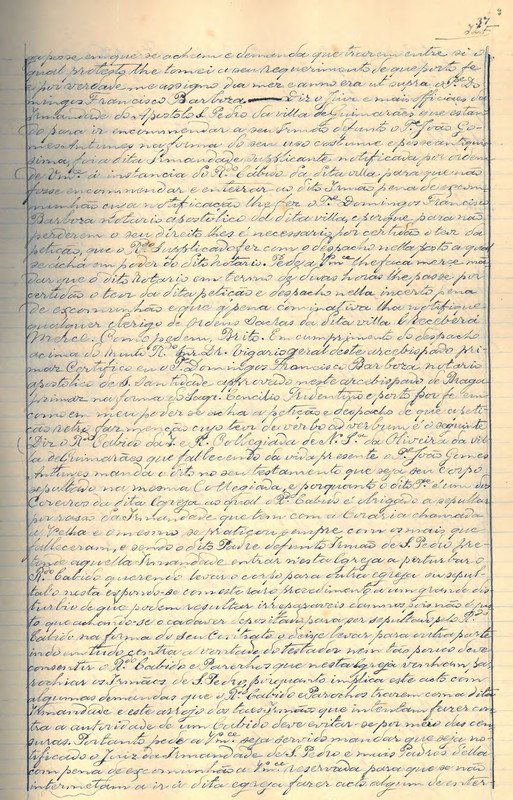 37
ga posse em que se acham e demanda que trazem entre si o
qual protesto lhe tomei a seu requerimento do que porto fé
e por verdade me assigno dia mez e anno era ut supra o P.e Do
mingos Francisco Barboza — Diz o Juiz e mais officiaes da
Irmandade do Apostolo S. Pedro da villa de Guimarães que estan
do para ir encommendar a seu Irmão defunto o P.e João Go
mes Antunes na forma do seu uso costume e posse antiquis
sima, foi a dita Irmandade supplicante notificada por ordem
de V.mce á instancia do R.do Cabido da dita villa para que não
fosse encommendar e enterrar ao dito Irmão pena de excom
munhão cuja notificação lhe fez o P.e Domingos Francisco
Barboza notario apostolico da dita villa, e porque para não
perderem o seu direito lhes é necessario por certidão o teor da
petição, que o R.do Supplicado fez com o despacho nella posto a qual
se acha em poder do dito Notario. Pede a V.mce lhe faça mercê man
dar que o dito Notario em termo de duas horas lhe passe por
certidão o teor da dita petição e despacho nella incerto pena
de excomunhão e que a pena cominativa lha notifique
qualquer clerigo de Ordens Sacras da dita villa E Receberá
Mercê. Como pedem, Brito. Em cumprimento do despacho
acima do Muito R.do Snr. Dr. Vigario geral deste arcebispado pri
maz Certifico eu o P.e Domingos Francisco Barboza notario
apostolico de S. Santidade approvado neste arcebispado de Braga
primaz na forma do Sagr. Concilio Tridentino e porto por fé em
como em meu poder se acha a petição e despacho de que a peti
ção retro faz menção cujo teor de verbo ad verbum é o seguinte
Diz o R.do Cabido da I. e R. Collegiada de N. S.ra da Oliveira da vil
la de Guimarães que fallecendo da vida presente o P.e João Gomes
Antunes manda o dito no seu testamento que seja seu corpo
sepultado na mesma Collegiada, e porquanto o dito P.e é um dos
Coreiros da dita Egreja ao qual o R.do Cabido é obrigado a sepultar
por rasão da Irmandade que tem com a Coraria chamada
a Velha e o mesmo se praticou sempre com os mais que
falleceram, e sendo o dito Padre defunto Irmão de S. Pedro pre
tende aquella Irmandade entrar nesta Egreja a perturbar o
R.do Cabido querendo levar o corpo para outra egreja ou sepul
tal-o nesta expondo-se com este raro procedimento a um grande dis
turbio de que podem resultar irreparaveis damnos pois não é jus
to que achando-se o cadaver depositado para ser sepultado pelo R.do
Cabido na forma do seu Contrato o deixe levar para outra parte
indo em tudo contra a vontade do testador nem tão pouco deve
consentir o R.do Cabido e Parochos que nesta Egreja venham pa
rochiar os Irmãos de S. Pedro, porquanto implica este acto com
algumas demandas que o R.do Cabido e Parochos trazem com a dita
Irmandade e este arrojo dos taes Irmãos que intentam fazer con
tra a autoridade de um Cabido deve evitar-se por meio das cen
suras. Portanto pede a V.mce seja servido mandar que seja no
tificado o juiz da Irmandade de S. Pedro e mais Padres della
com pena de excomunhão a V.mce reservada para que se não
intromettam a ir á dita egreja fazer acto algum de enter-